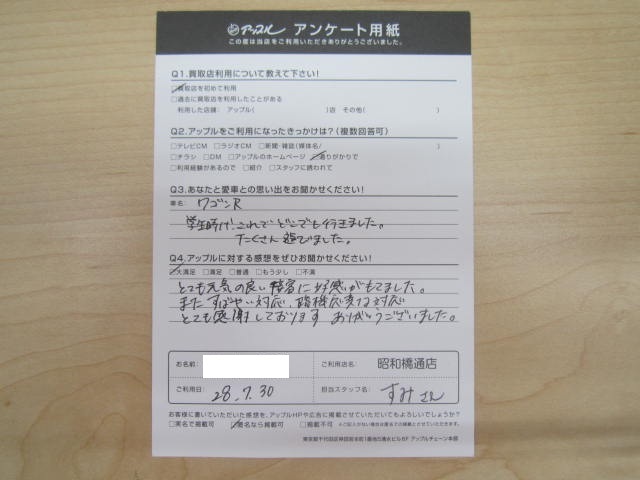 アップル アンケート用紙
この度は当店をご利用いただきありがとうございました。
Q1.買取店利用について教えて下さい!
☑買取店を初めて利用
□過去に買取店を利用したことがある
利用した店舗: アップル( )店 その他( )
Q2.アップルをご利用になったきっかけは?(複数回答可)
□テレビCM □ラジオCM □新聞・雑誌(媒体名/ )
□チラシ □DM □アップルのホームページ ☑通りがかりで
□利用経験があるので □紹介 □スタッフに誘われて
Q3.あなたと愛車との思い出をお聞かせください!
車名: ワゴンR
学生時代!これでどこでも行きました。
たくさん遊びました。
Q4.アップルに対する感想をぜひお聞かせください!
☑大満足 □満足 □普通 □もう少し □不満
とても元気の良い接客に好感がもてました。
また すばやい対応、臨機応変な対応
とても感謝しております ありがとうございました。
お名前: ご利用店名: 昭和橋通店
ご利用日: 28.7.30 担当スタッフ名: すみさん
お客様に書いていただいた感想を、アップルHPや広告に掲載させていただいてもよろしいでしょうか?
□実名で掲載可 ☑匿名なら掲載可 □掲載不可 ※ご記入がない場合は匿名での掲載とさせていただきます。
東京都千代田区神田司本町1番地 アップルチェーン本部